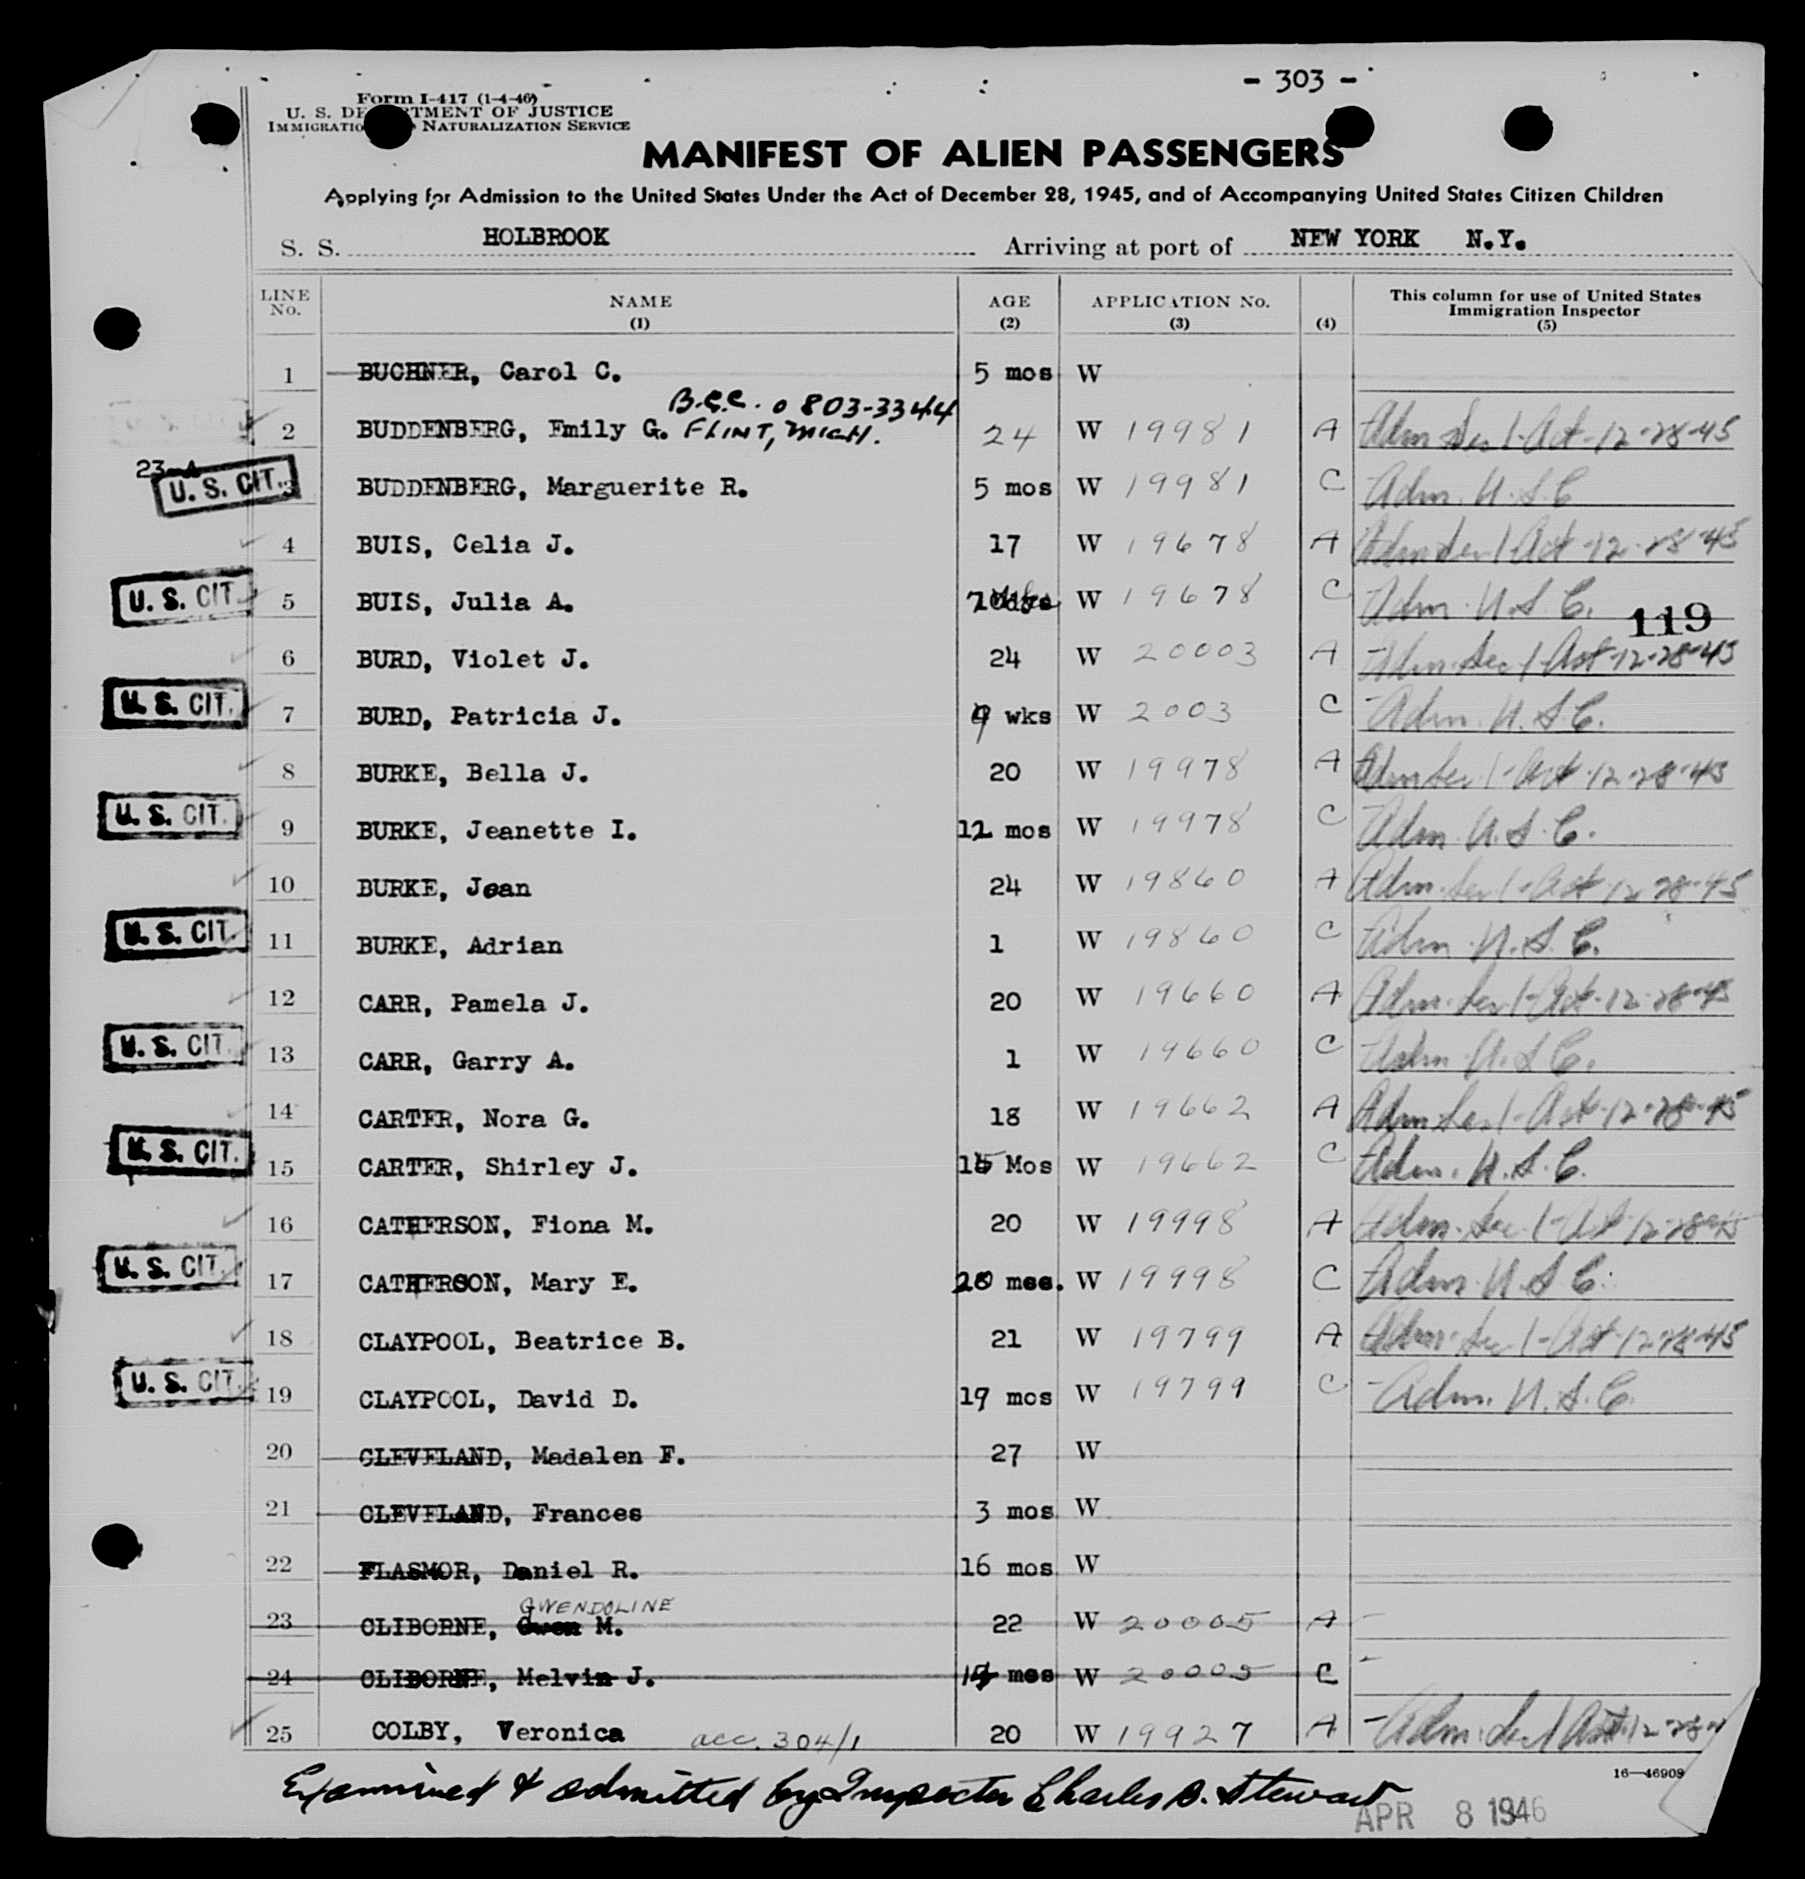 - 303 -
Form I-417 (1-4-46)
U. S. DE TMENT OF JUSTICE
IMMIGRATIO NATURALIZATION SERVICE
MANIFEST OF ALIEN PASSENGERS
Applying for Admission to the United States Under the Act of December 28, 1945, and of Accompanying United States Citizen Children
S. S. HOLBROOK Arriving at port of NEW YORK N.Y.
LINE No. NAME (1) AGE (2) APPLICATION No. (3) (4) This column for use of United States Immigration Inspector (5)
1 BUCHNER, Carol C. 5 mos W
B.C.C. 0 803-3344
2 BUDDENBERG, Emily G. FLINT, MICH. 24 W 19981 A Adm Sec 1-Act-12-28-45
23-A
U. S. CIT. 3 BUDDENBERG, Marguerite R. 5 mos W 19981 C Adm. U.S.C
4 BUIS, Celia J. 17 W 19678 A Adm Sec 1 Act-12-28-45
U. S. CIT. 5 BUIS, Julia A. W 19678 C Adm. U.S.C.
119
6 BURD, Violet J. 24 W 20003 A Adm. Sec 1 Act-12-28-45
U. S. CIT. 7 BURD, Patricia J. 9 wks W 2003 C Adm. U.S.C.
8 BURKE, Bella J. 20 W 19978 A Adm Sec 1-Act-12-28-45
U. S. CIT. 9 BURKE, Jeanette I. 12 mos W 19978 C Adm. U.S.C.
10 BURKE, Jean 24 W 19860 A Adm. Sec 1-Act 12-28-45
U. S. CIT. 11 BURKE, Adrian 1 W 19860 C Adm. U.S.C.
12 CARR, Pamela J. 20 W 19660 A Adm. Sec 1-Act-12-28-45
U. S. CIT. 13 CARR, Garry A. 1 W 19660 C Adm. U.S.C.
14 CARTER, Nora G. 18 W 19662 A Adm Sec 1-Act-12-28-45
U. S. CIT. 15 CARTER, Shirley J. 15 Mos W 19662 C Adm. U.S.C.
16 CATHERSON, Fiona M. 20 W 19998 A Adm. Sec 1-Act-12-28-45
U. S. CIT. 17 CATHERSON, Mary E. 20 mos. W 19998 C Adm. U.S.C.
18 CLAYPOOL, Beatrice B. 21 W 19799 A Adm. Sec 1-Act-12-28-45
U. S. CIT. 19 CLAYPOOL, David D. 19 mos W 19799 C Adm. U.S.C.
20 CLEVELAND, Madalen F. 27 W
21 CLEVELAND, Frances 3 mos W
22 FLASMOR, Daniel R. 16 mos W
GWENDOLINE
23 CLIBORNE, Gwen M. 22 W 20005 A -
24 CLIBORNE, Melvin J. mos W 20005 C -
25 COLBY, Veronica acc. 304/1 20 W 19927 A - Adm. Sec 1 Act-12-28-
16-46909
Examined & admitted by Inspector Charles B. Stewart
APR 8 1946